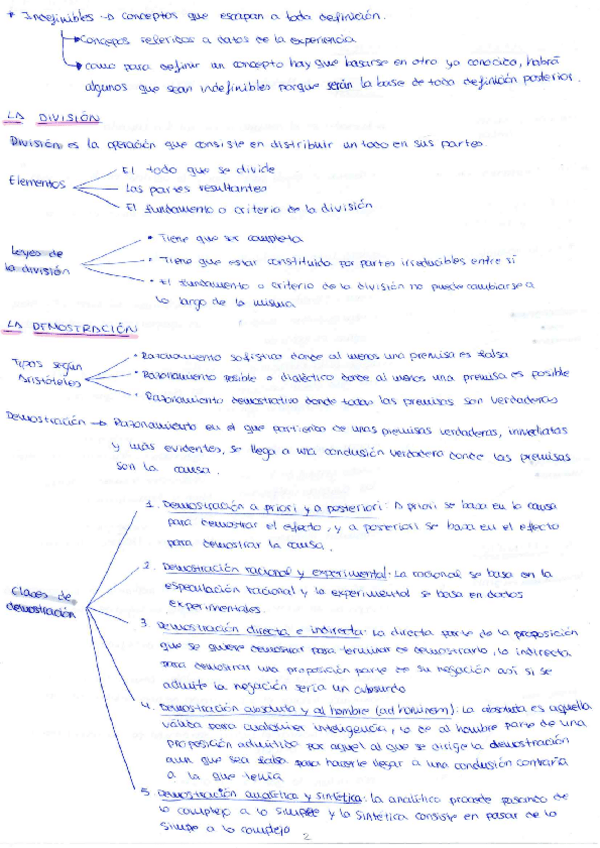 * Indefinibles → conceptos que escapan a toda definición.
→ Conceptos referidos a datos de la experiencia
→ como para definir un concepto hay que basarse en otro ya conocido, habrá
algunos que sean indefinibles porque serán la base de toda definición posterior.
LA DIVISIÓN
División: es la operación que consiste en distribuir un todo en sus partes
Elementos
El todo que se divide
Las partes resultantes
El fundamento o criterio de la división
Leyes de
la división
• Tiene que ser completa
• Tiene que estar constituida por partes irreducibles entre sí
• El fundamento o criterio de la división no puede cambiarse a
lo largo de la misma
LA DEMOSTRACIÓN
Tipos según
Aristóteles
• Razonamiento sofístico donde al menos una premisa es falsa
• Razonamiento posible o dialéctico donde al menos una premisa es posible
• Razonamiento demostrativo donde todas las premisas son verdaderas
Demostración → Razonamiento en el que partiendo de unas premisas verdaderas, inmediatas
y más evidentes, se llega a una conclusión verdadera donde las premisas
son la causa.
Clases de
demostración
1. Demostración a priori y a posteriori: A priori se basa en la causa
para demostrar el efecto, y a posteriori se basa en el efecto
para demostrar la causa.
2. Demostración racional y experimental: La racional se basa en la
especulación racional y la experimental se basa en datos
experimentales.
3. Demostración directa e indirecta: La directa parte de la proposición
que se quiere demostrar para terminar de demostrarlo, la indirecta
para demostrar una proposición parte de su negación así si se
admite la negación sería un absurdo
4. Demostración absoluta y al hombre (ad hominem): la absoluta es aquella
válida para cualquier inteligencia, la de al hombre parte de una
proposición admitida por aquel al que se dirige la demostración
aun que sea falsa para hacerle llegar a una conclusión contraria
a la que tenía
5. Demostración analítica y sintética: la analítica procede pasando de
lo complejo a lo simple y la sintética consiste en pasar de lo
simple a lo complejo
2